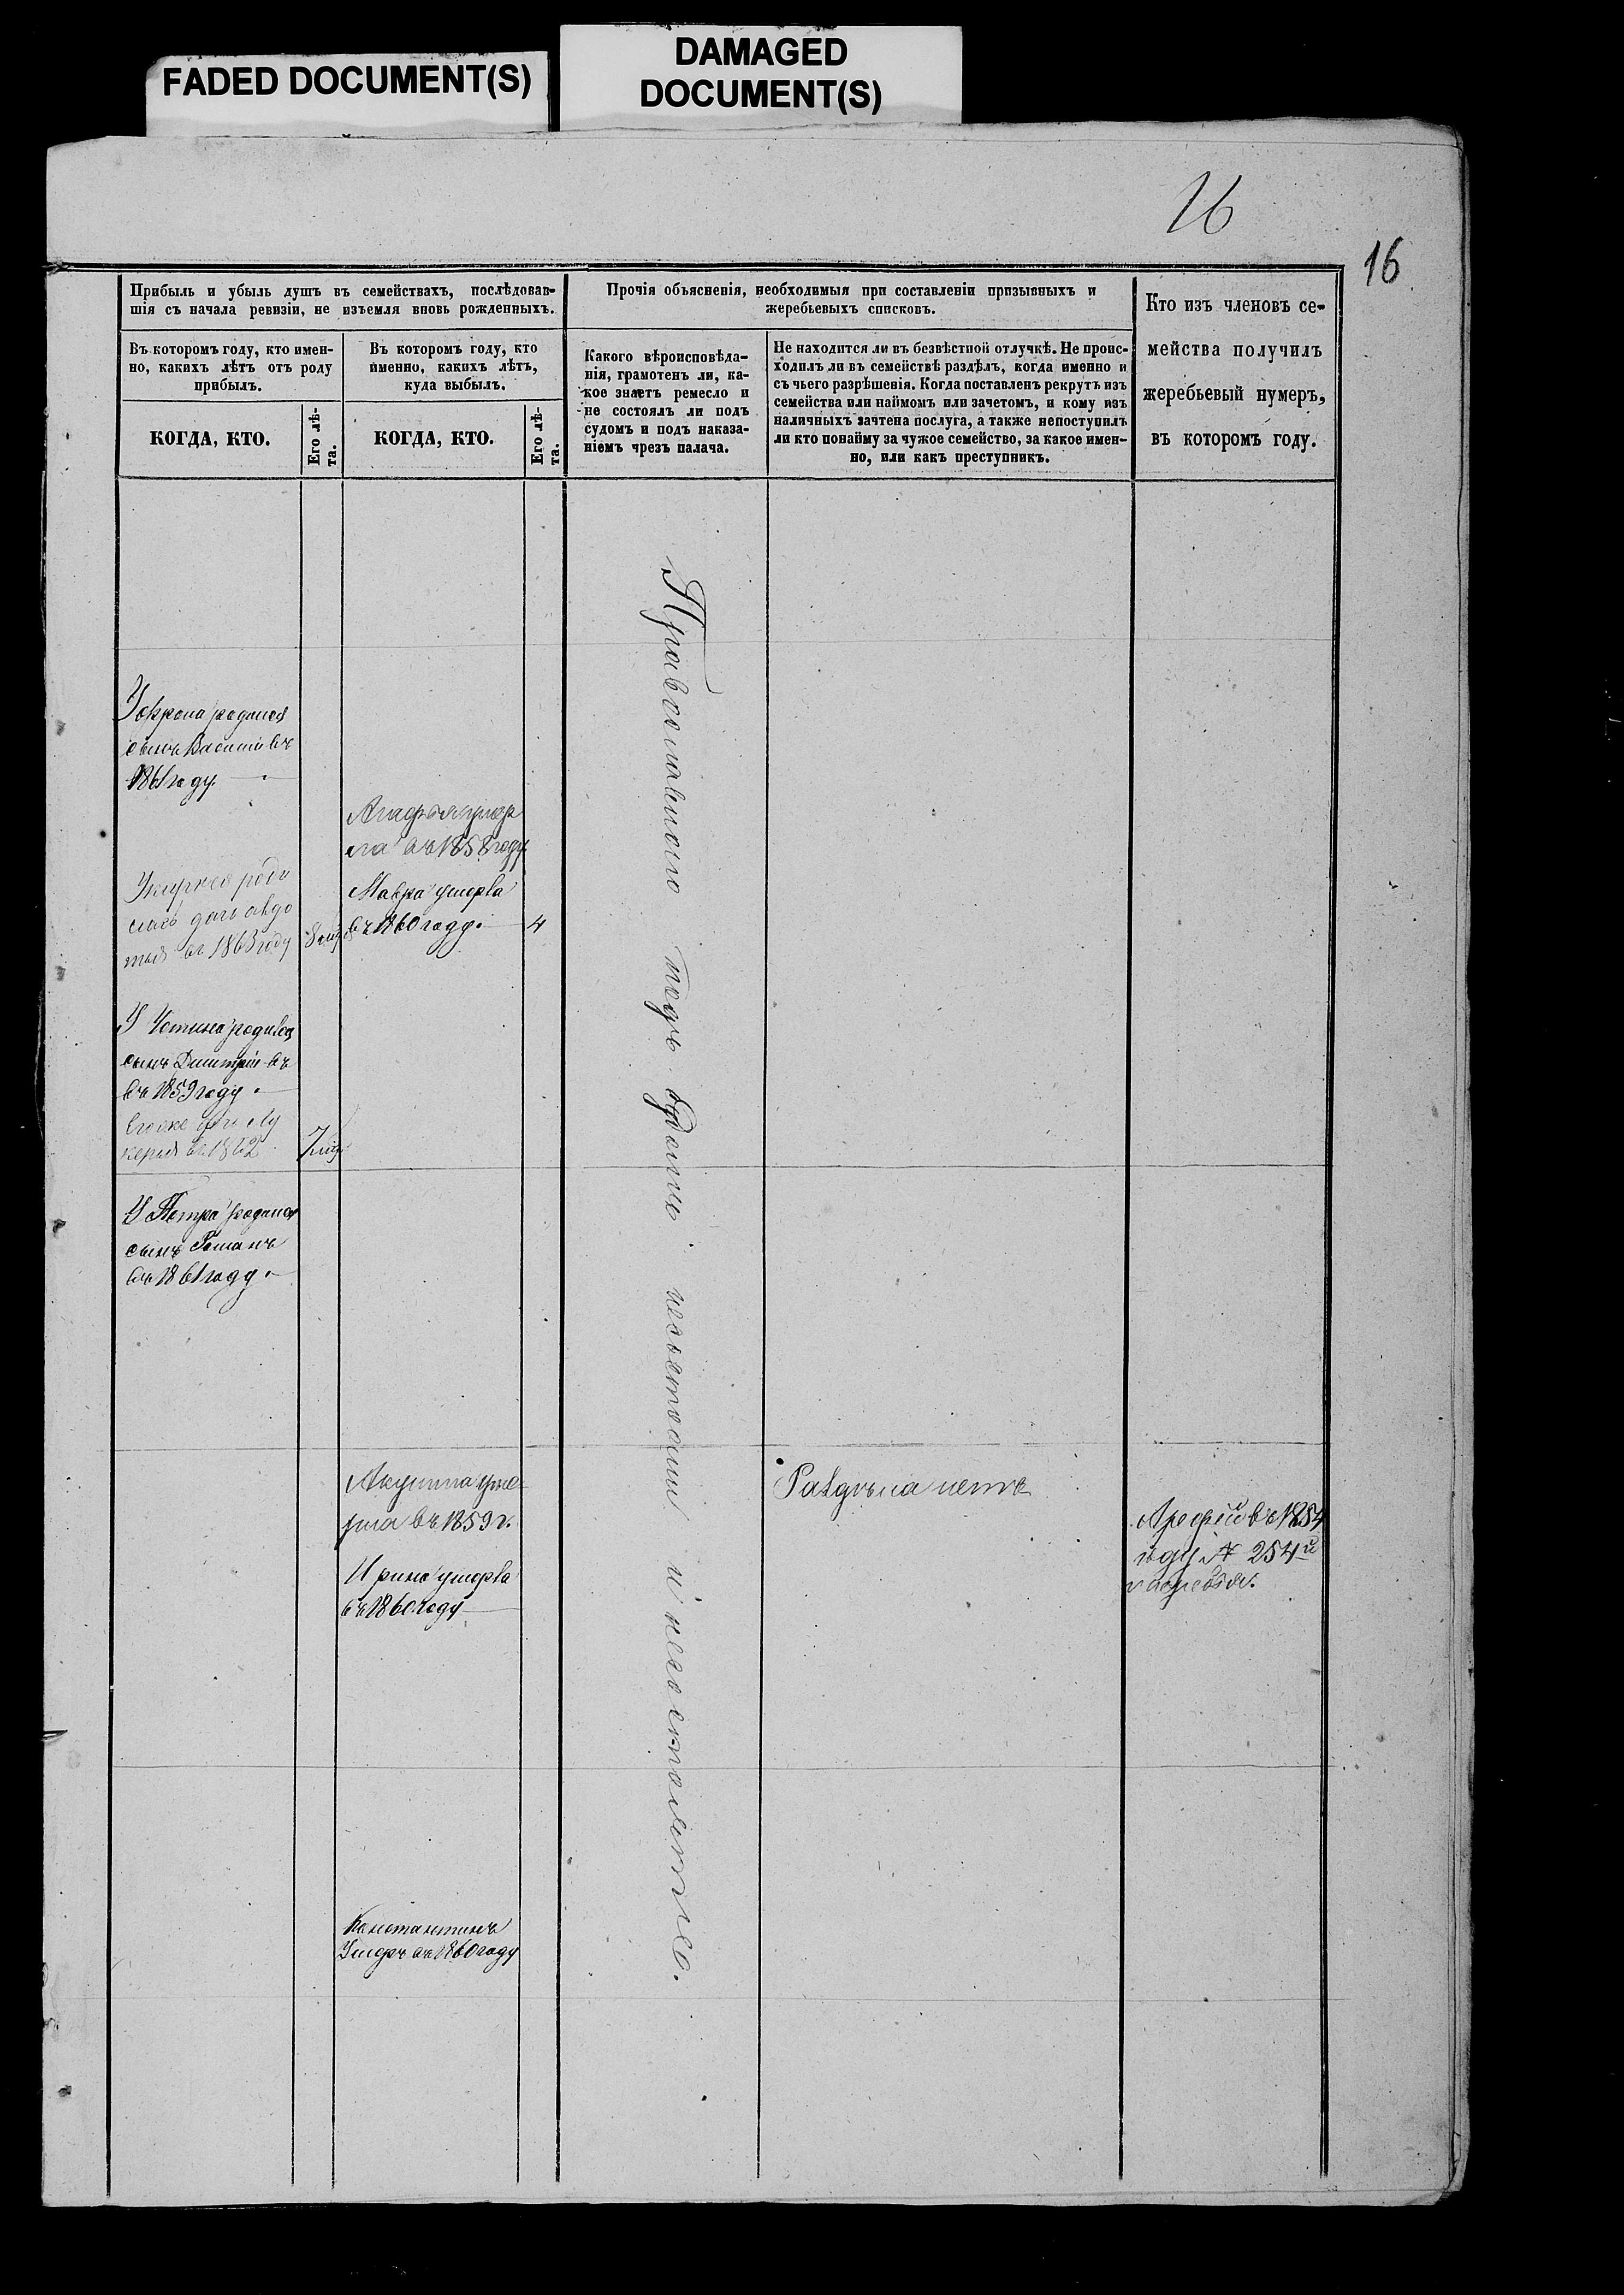 FADED DOCUMENT(S)
DAMAGED
DOCUMENT(S)
16
16
Прибыль и убыль душъ въ семействахъ, послѣдовав-
шія съ начала ревизіи, не изъемля вновь рожденныхъ.
Въ которомъ году, кто имен-
но, какихъ лѣтъ отъ роду
прибылъ.
КОГДА, КТО.
Его лѣ-
та.
Въ которомъ году, кто
именно, какихъ лѣтъ,
куда выбылъ.
КОГДА, КТО.
Его лѣ-
та.
Прочія объясненія, необходимыя при составленіи призывныхъ и
жеребьевыхъ списковъ.
Какого вѣроисповѣда-
нія, грамотенъ ли, ка-
кое знаетъ ремесло и
не состоялъ ли подъ
судомъ и подъ наказа-
ніемъ чрезъ палача.
Не находится ли въ безвѣстной отлучкѣ. Не проис-
ходилъ ли въ семействѣ раздѣлъ, когда именно и
съ чьего разрѣшенія. Когда поставленъ рекрутъ изъ
семейства или наймомъ или зачетомъ, и кому изъ
наличныхъ зачтена послуга, а также непоступилъ
ли кто понайму за чужое семейство, за какое имен-
но, или какъ преступникъ.
Кто изъ членовъ се-
мейства получилъ
жеребьевый нумеръ,
въ которомъ году.
родился
сынъ Василій въ
1861 году.
роди
лась дочь авдо
тья въ 1863 году
У Устина родился
сынъ Дмитрій въ
въ 1859 году.
дочь Лу
керья въ 1862
У Петра родился
сынъ Романъ
въ 1861 году.
Агафья умер
ла въ 1858 году
Мавра умерла
въ 1860 году. 4
Акулина уме-
рла въ 1859 г.
Ирина умерла
въ 1860 году
Константинъ
Умеръ въ 1860 году
Православного подъ судомъ несостоялъ и несостоитъ.
Раздѣла нетъ
Арефій въ 1854
году № 254й